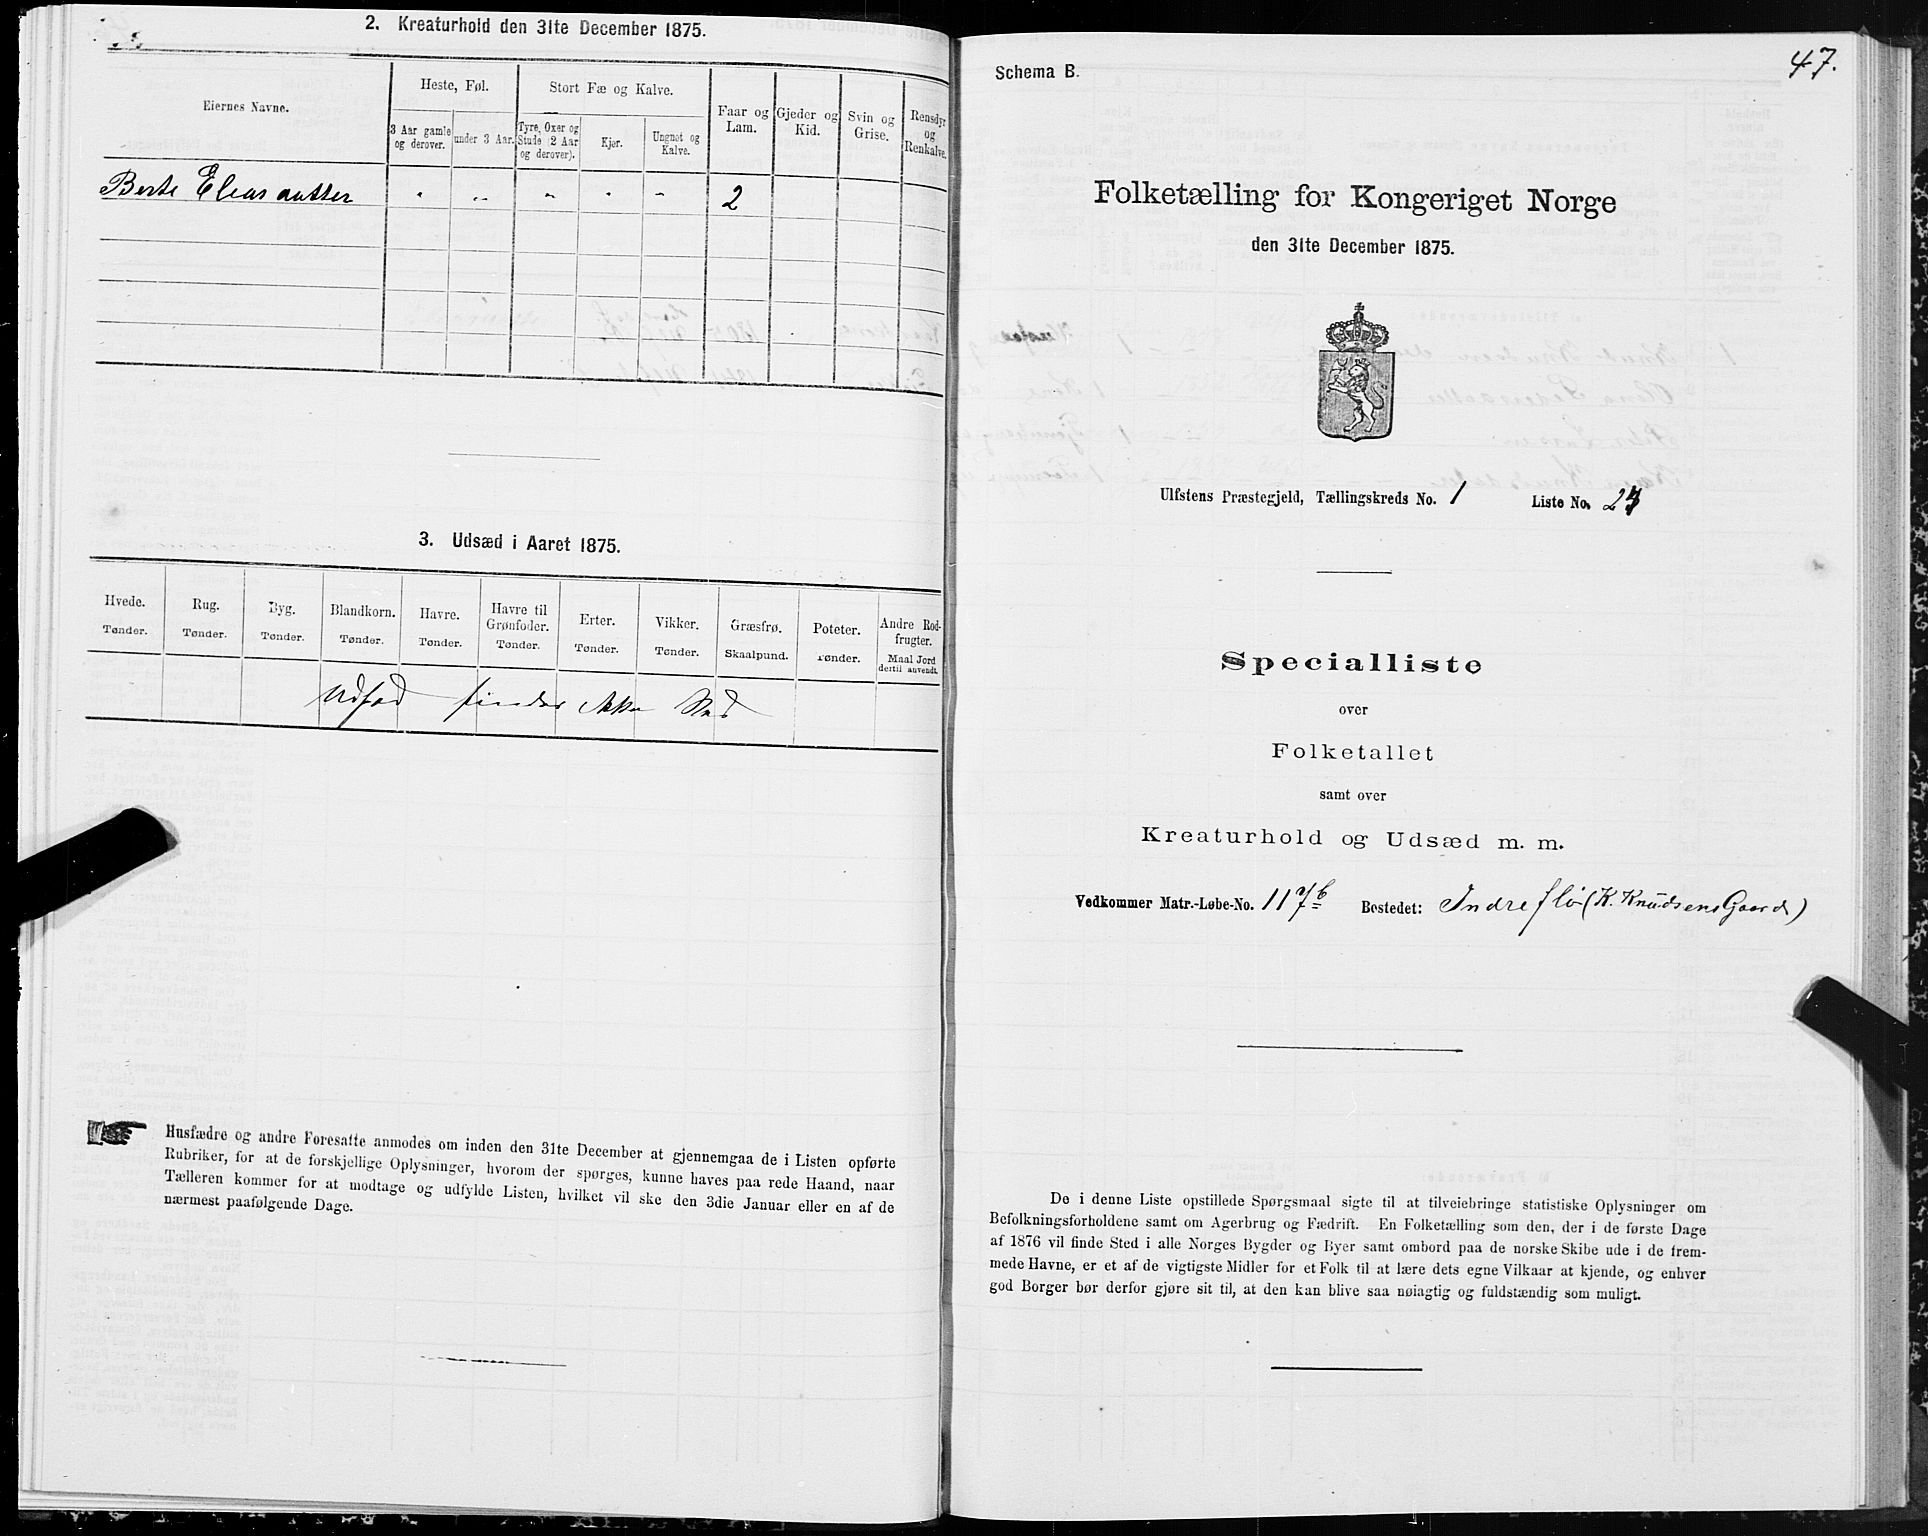 2. Kreaturhold den 31te December 1875.
Eiernes Navne.
Heste, Føl.
Stort Fæ og Kalve.
Faar og Lam.
Gjeder og Kid.
Svin og Grise.
Rensdyr og Renkalve.
3 Aar gamle og derover.
under 3 Aar.
Tyre, Oxer og Stude (2 Aar og derover).
Kjør.
Ungnøt og Kalve.
Berte Elias datter " " " " " 2
3. Udsæd i Aaret 1875.
Hvede. Tønder.
Rug. Tønder.
Byg. Tønder.
Blandkorn. Tønder.
Havre. Tønder.
Havre til Grønfoder. Tønder.
Erter. Tønder.
Vikker. Tønder.
Græsfrø. Skaalpund.
Poteter. Tønder.
Andre Rodfrugter. Maal Jord dertil anvendt.
Udsæd finder ikke Sted
Husfædre og andre Foresatte anmodes om inden den 31te December at gjennemgaa de i Listen opførte
Rubriker, for at de forskjellige Oplysninger, hvorom der spørges, kunne haves paa rede Haand, naar
Tælleren kommer for at modtage og udfylde Listen, hvilket vil ske den 3die Januar eller en af de
nærmest paafølgende Dage.
47.
Schema B.
Folketælling for Kongeriget Norge
den 31te December 1875.
Ulfstens Præstegjeld, Tællingskreds No. 1 Liste No.
Specialliste
over
Folketallet
samt over
Kreaturhold og Udsæd m. m.
Vedkommer Matr.-Løbe-No. 117b Bostedet: Indreflø (K. Knudsens Gaard)
De i denne Liste opstillede Spørgsmaal sigte til at tilveiebringe statistiske Oplysninger om
Befolkningsforholdene samt om Agerbrug og Fædrift. En Folketælling som den, der i de første Dage
af 1876 vil finde Sted i alle Norges Bygder og Byer samt ombord paa de norske Skibe ude i de frem-
mede Havne, er et af de vigtigste Midler for et Folk til at lære dets egne Vilkaar at kjende, og enhver
god Borger bør derfor gjøre sit til, at den kan blive saa nøiagtig og fuldstændig som muligt.